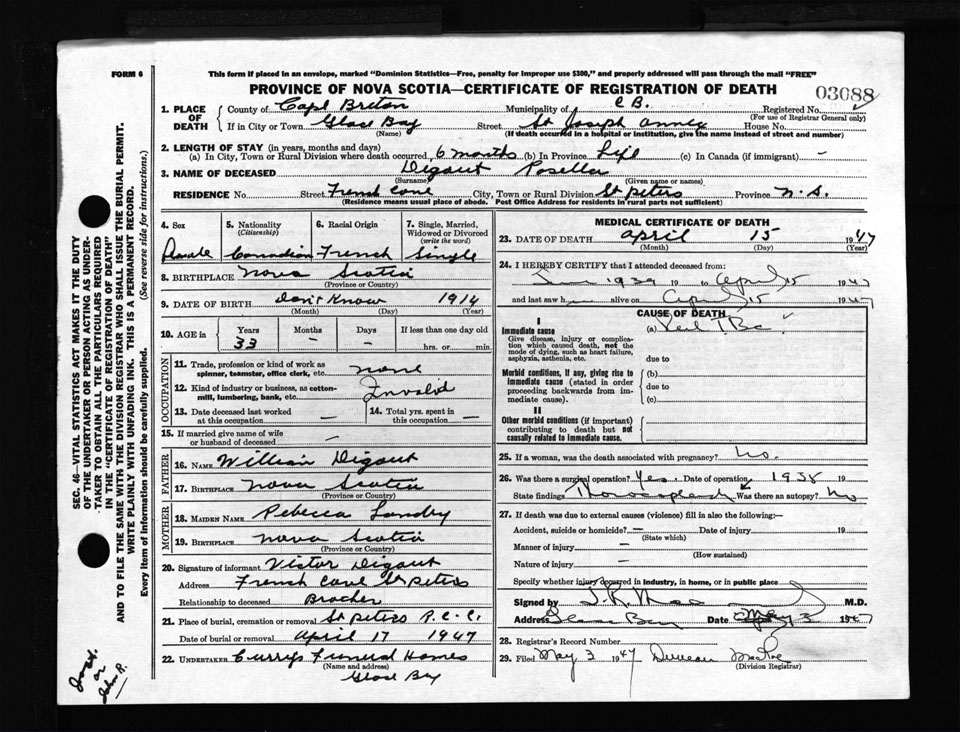 FORM 6
This form if placed in an envelope, marked "Dominion Statistics—Free, penalty for improper use $300," and properly addressed will pass through the mail "FREE"
PROVINCE OF NOVA SCOTIA—CERTIFICATE OF REGISTRATION OF DEATH
03088
1. PLACE OF DEATH
County of Cape Breton Municipality of C B. Registered No.
(For use of Registrar General only)
If in City or Town Glace Bay Street St Joseph Annex House No.
(Name) (If death occurred in a hospital or institution, give the name instead of street and number)
2. LENGTH OF STAY (in years, months and days)
(a) In City, Town or Rural Division where death occurred 6 months (b) In Province Life (c) In Canada (if immigrant) —
3. NAME OF DECEASED Digaut Rosella
(Surname) (Given name or names)
RESIDENCE No. Street French Cove City, Town or Rural Division St Peters Province N.S.
(Residence means usual place of abode. Post Office Address for residents in rural parts not sufficient)
4. Sex
Female
5. Nationality
(Citizenship)
Canadian
6. Racial Origin
French
7. Single, Married, Widowed or Divorced
(write the word)
Single
8. BIRTHPLACE Nova Scotia
(Province or Country)
9. DATE OF BIRTH Don't Know 1914
(Month) (Day) (Year)
10. AGE in
Years Months Days If less than one day old
33 — — hrs. or min.
OCCUPATION
11. Trade, profession or kind of work as spinner, teamster, office clerk, etc. none
12. Kind of industry or business, as cotton-mill, lumbering, bank, etc. Invalid
13. Date deceased last worked at this occupation —
14. Total yrs. spent in this occupation —
15. If married give name of wife or husband of deceased —
FATHER
16. NAME William Digaut
17. BIRTHPLACE Nova Scotia
(Province or Country)
MOTHER
18. MAIDEN NAME Rebecca Landry
19. BIRTHPLACE Nova Scotia
(Province or Country)
20. Signature of informant Victor Digaut
Address French Cove St Peters
Relationship to deceased Brother
21. Place of burial, cremation or removal St Peters R.C.C.
Date of burial or removal April 17 1947
22. UNDERTAKER Currys Funeral Homes
(Name and address)
Glace Bay
MEDICAL CERTIFICATE OF DEATH
23. DATE OF DEATH April 15 1947
(Month) (Day) (Year)
24. I HEREBY CERTIFY that I attended deceased from:
June 1939 19 to April 15 1947
and last saw h alive on April 15 1947
CAUSE OF DEATH
I
Immediate cause
Give disease, injury or complication which caused death, not the mode of dying, such as heart failure, asphyxia, asthenia, etc.
(a)
due to
Morbid conditions, if any, giving rise to immediate cause (stated in order proceeding backwards from immediate cause).
(b)
due to
(c)
II
Other morbid conditions (if important) contributing to death but not causally related to immediate cause.
25. If a woman, was the death associated with pregnancy? No.
26. Was there a surgical operation? Yes. Date of operation 1938 19
State findings Was there an autopsy? No
27. If death was due to external causes (violence) fill in also the following:—
Accident, suicide or homicide? — Date of injury 19
(State which)
Manner of injury —
(How sustained)
Nature of injury —
Specify whether injury occurred in industry, in home, or in public place
Signed by M.D.
Address Glace Bay Date May 3 1947
28. Registrar's Record Number
29. Filed May 3 1947 Duncan
(Division Registrar)
SEC. 46—VITAL STATISTICS ACT MAKES IT THE DUTY
OF THE UNDERTAKER OR PERSON ACTING AS UNDER-
TAKER TO OBTAIN ALL THE PARTICULARS REQUIRED
IN THE "CERTIFICATE OF REGISTRATION OF DEATH"
AND TO FILE THE SAME WITH THE DIVISION REGISTRAR WHO SHALL ISSUE THE BURIAL PERMIT.
WRITE PLAINLY WITH UNFADING INK. THIS IS A PERMANENT RECORD.
Every item of information should be carefully supplied. (See reverse side for instructions.)
or
John R.